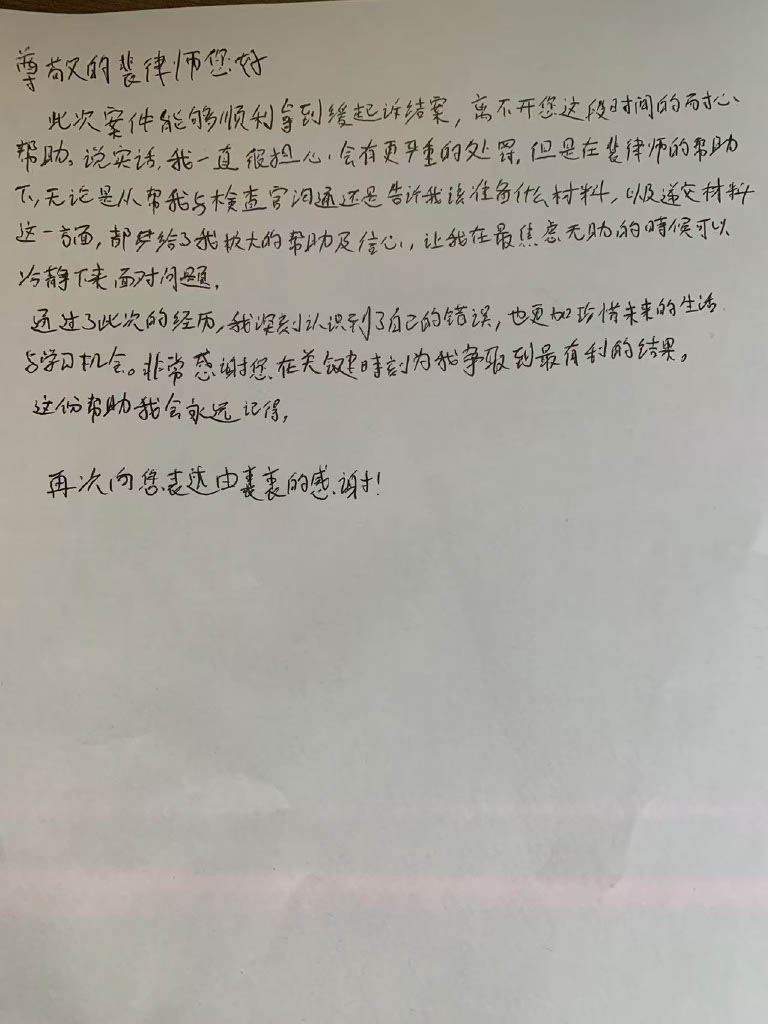 尊敬的裴律师您好
此次案件能够顺利拿到缓起诉结案，离不开您这段时间的耐心
帮助。说实话，我一直很担心会有更严重的处罚，但是在裴律师的帮助
下，无论是从帮我与检查官沟通还是告诉我该准备什么材料，以及递交材料
这一方面，都带给了我极大的帮助及信心，让我在最焦虑无助的時候可以
冷静下来面对问题。
通过了此次的经历，我深刻认识到了自己的错误，也更加珍惜未来的生活
与学习机会。非常感谢您在关键時刻为我争取到最有利的结果。
这份帮助我会永远记得，
再次向您表达由衷的感谢！